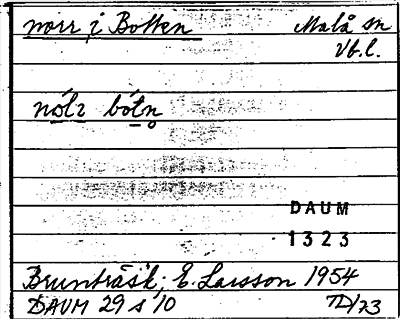 norr i Botten Malå sn
Vb.l.
nólz bótn̥
DAUM
1323
Brunträsk; E. Larsson 1954
DAUM 29 s 10 /73